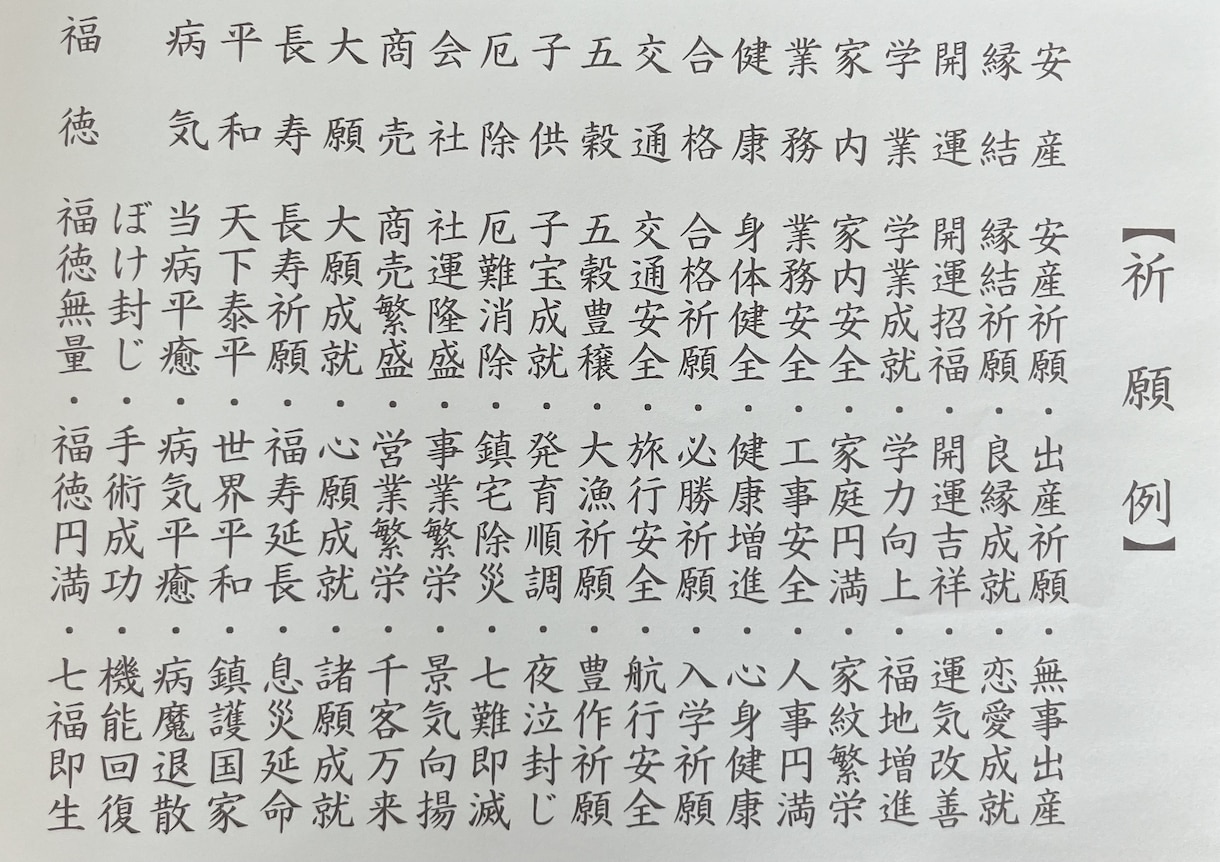 【祈願例】
安産 安産祈願・出産祈願・無事出産
縁結 縁結祈願・良縁成就・恋愛成就
開運 開運招福・開運吉祥・運気改善
学業 学業成就・学力向上・福地増進
家内 家内安全・家庭円満・家紋繁栄
業務 業務安全・工事安全・人事円満
健康 身体健全・健康増進・心身健康
合格 合格祈願・必勝祈願・入学祈願
交通 交通安全・旅行安全・航行安全
五穀 五穀豊穣・大漁祈願・豊作祈願
子供 子宝成就・発育順調・夜泣封じ
厄除 厄難消除・鎮宅除災・七難即滅
会社 社運隆盛・事業繁栄・景気向揚
商売 商売繁盛・営業繁栄・千客万来
大願 大願成就・心願成就・諸願成就
長寿 長寿祈願・福寿延長・息災延命
平和 天下泰平・世界平和・鎮護国家
病気 当病平癒・病気平癒・病魔退散
ぼけ封じ・手術成功・機能回復
福徳 福徳無量・福徳円満・七福即生